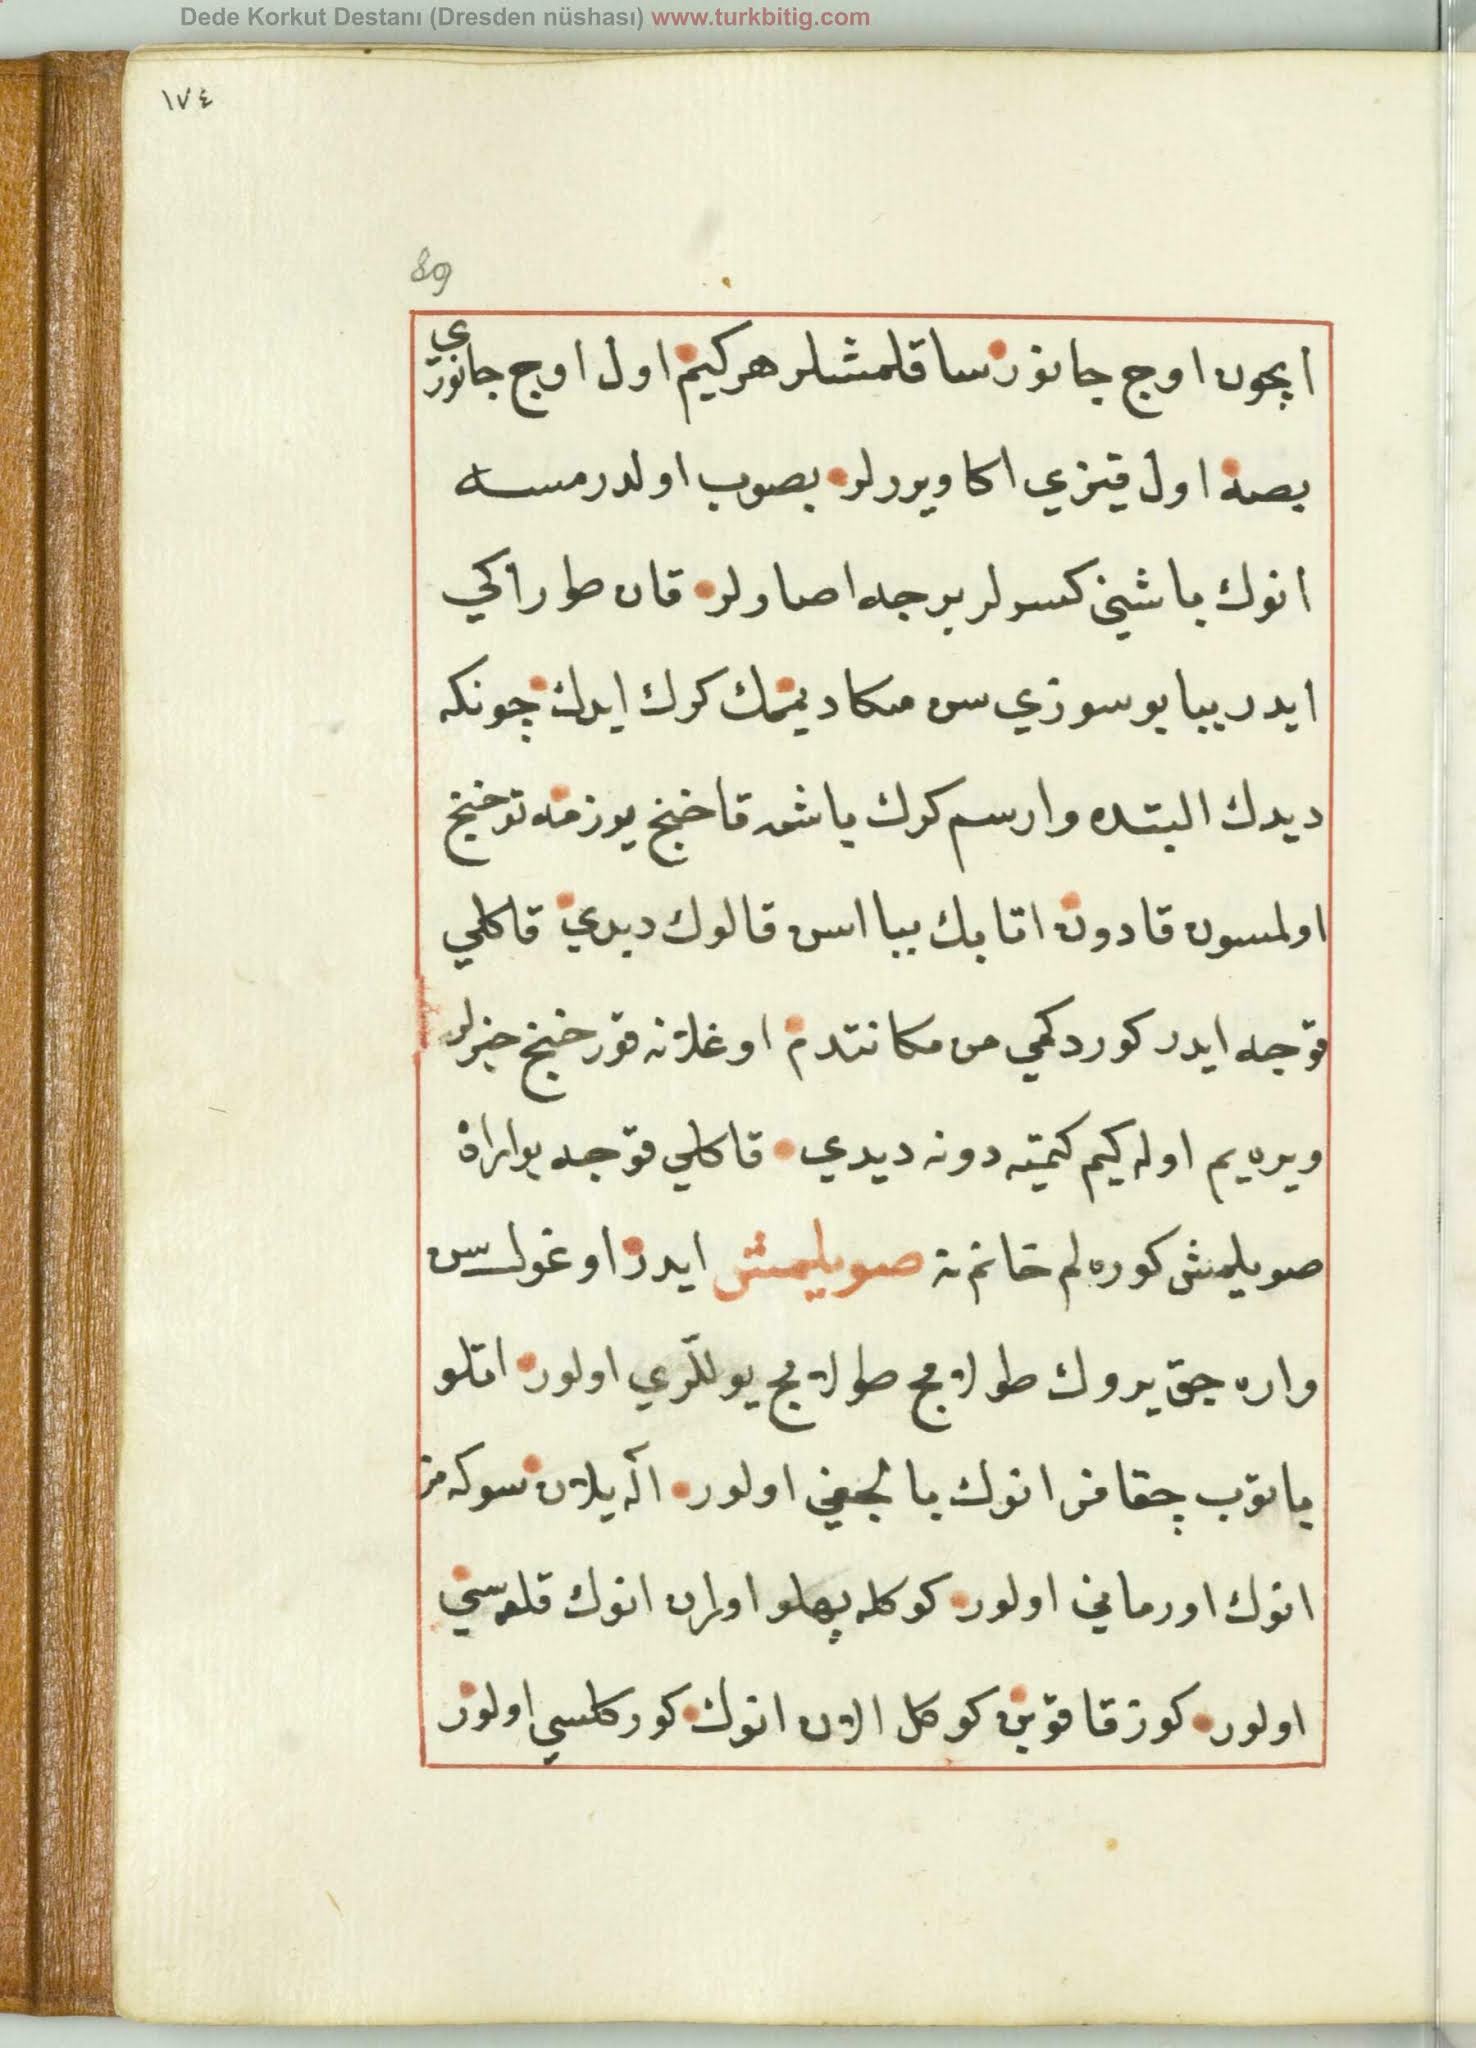 Dede Korkut Destanı (Dresden nüshası) www.turkbitig.com
١٧٤
89
ایچون اوج جانور ساقلمشلر هر کیم اول اوج جانوری
بصه اول قیزی اکا ویررلر بصوب اولدرمسه
انوك باشینی کسرلر برجه اصارلر قان طورالی
ایدر ببا بو سوزی سن مکا دیممك کرك ایدك چونکه
دیدك البتده وارسم کرك باشمه قاخنج یوزمه توخنج
اولمسون قادون انا بك ببا اسن قالوك دیدی قاکلی
قوجه ایدر کوردکمی من مکا نتدم اوغلانه قورخنج خبرلر
ویره یم اوله کیم کیتمیه دونه دیدی قاکلی قوجه بوراده
صویلمش کوره لم خانم نه صویلمش ایدر اوغول سن
واره جق یروك طولامج طولامج یوللری اولور اتلو
باتوب چقامز انوك بالچغی اولور اله یلان سوکه مز
انوك اورمانی اولور کوکله پهلو اوران انوك قلعه سی
اولور کوز قاقوبن کوکل الان انوك کورکلسی اولور